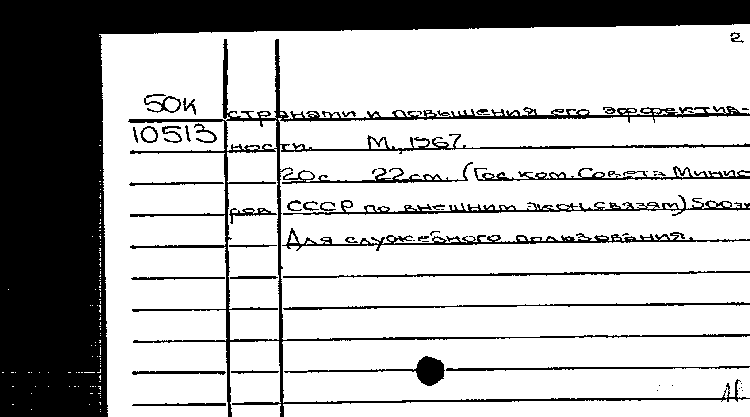 2
50К странами и повышения его эффектив-
10513 ности. М., 1967.
20с. 22см. (Гос. ком. Совета Минист-
ров СССР по внешним экон. связям) 500эк
Для служебного пользования.